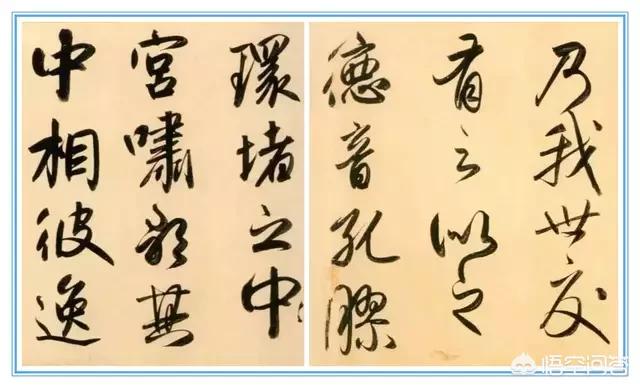 乃我世交
有之似之
德音孔膠
環堵之中
宮嘯無
中相彼逸
悟空问答